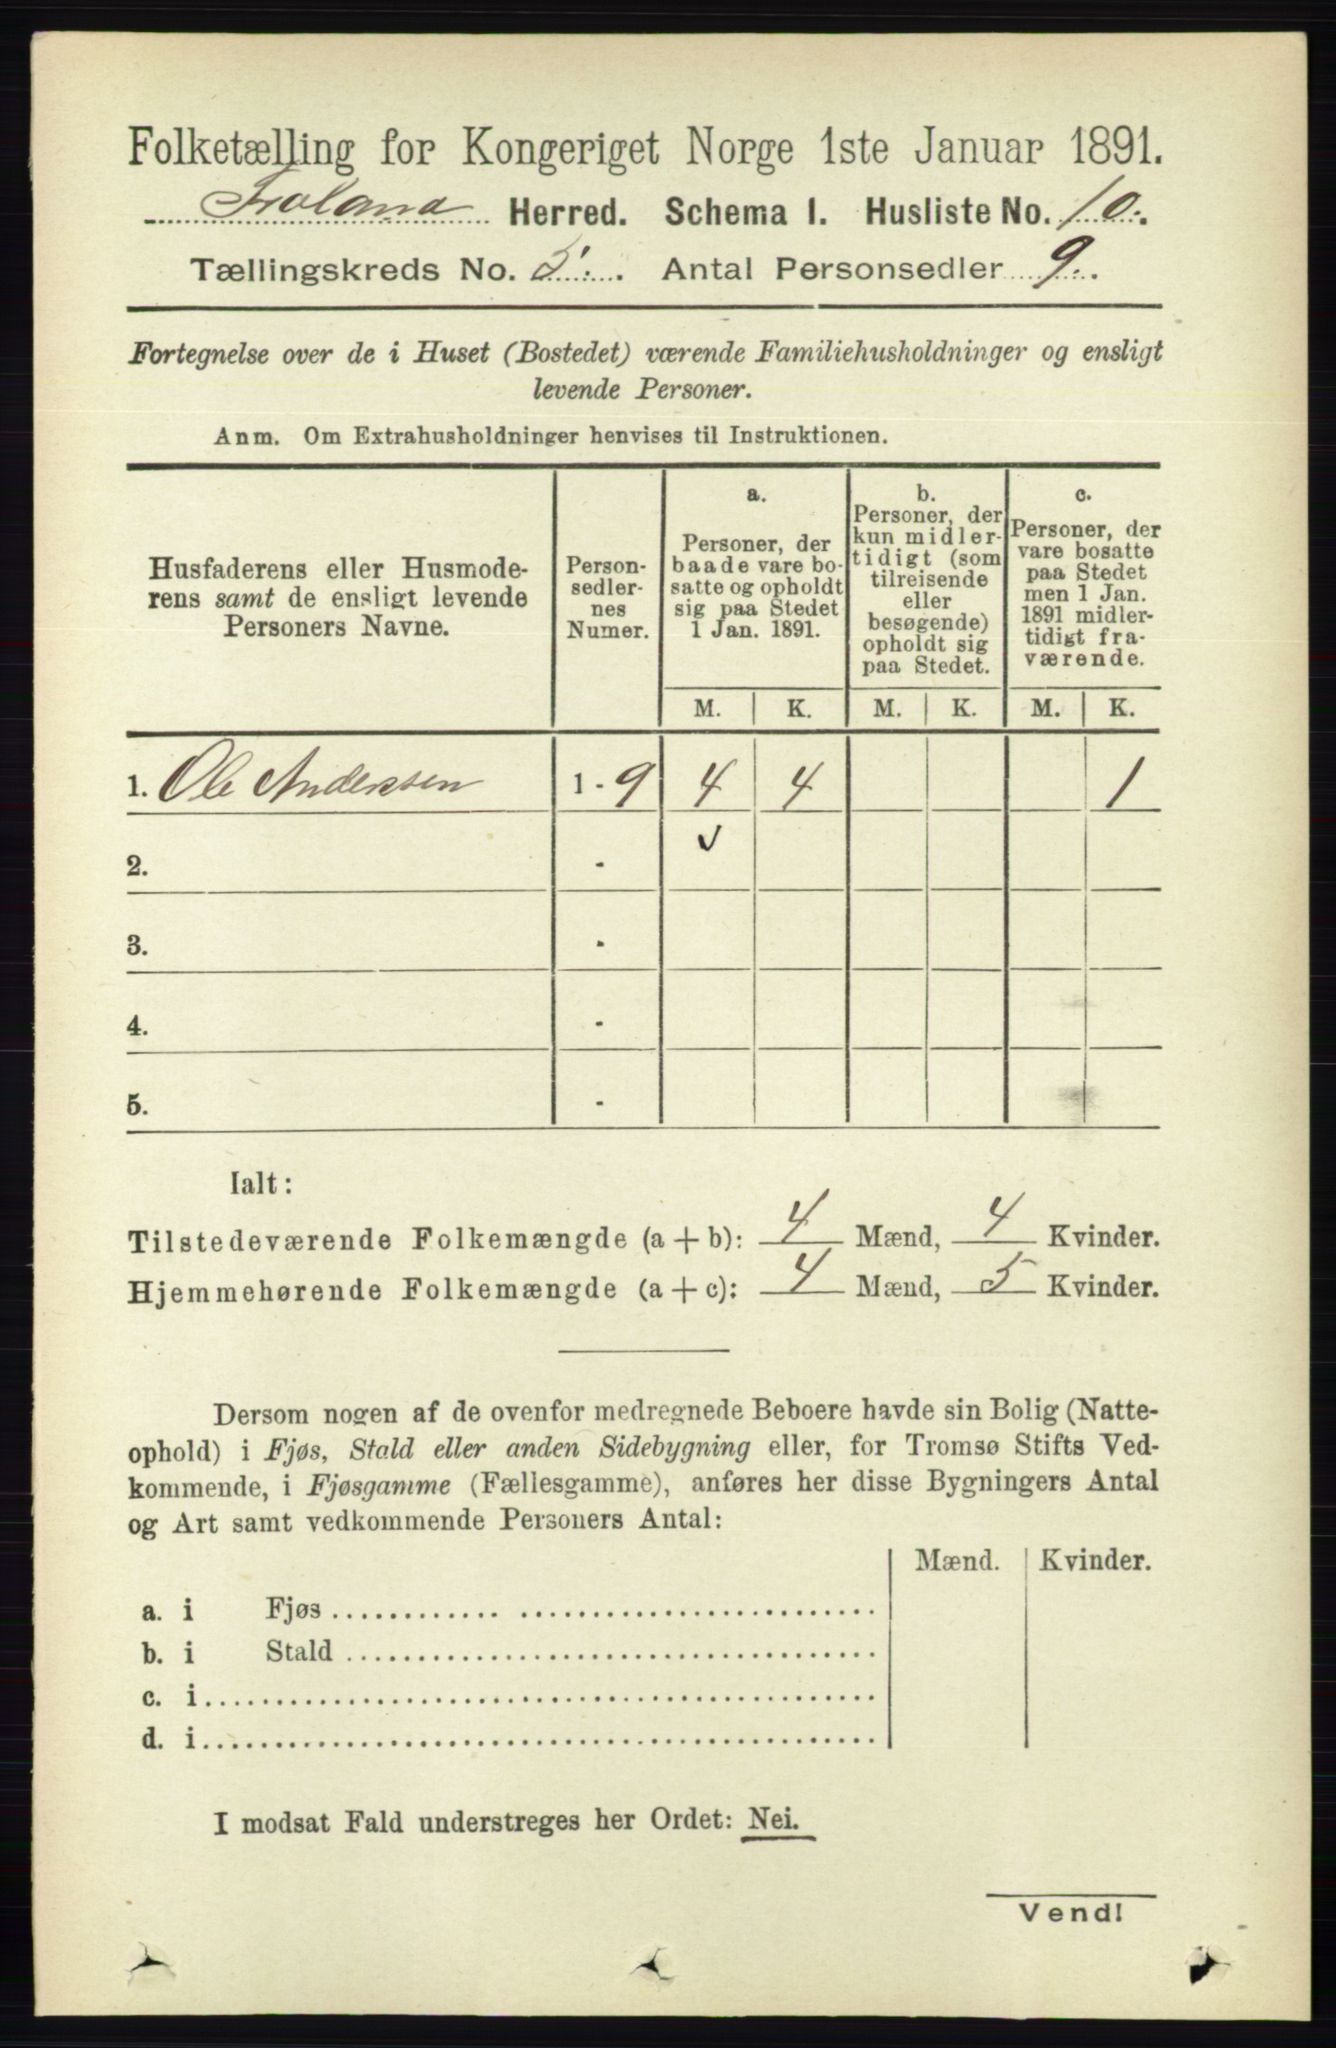 Folketælling for Kongeriget Norge 1ste Januar 1891.
Froland Herred. Schema 1. Husliste No. 10.
Tællingskreds No. 5. Antal Personsedler 9.
Fortegnelse over de i Huset (Bostedet) værende Familiehusholdninger og ensligt
levende Personer.
Anm. Om Extrahusholdninger henvises til Instruktionen.
Husfaderens eller Husmode-
rens samt de ensligt levende
Personers Navne.
Person-
sedler-
nes
Numer.
a.
Personer, der
baade vare bo-
satte og opholdt
sig paa Stedet
1 Jan. 1891.
b.
Personer, der
kun midler-
tidigt (som
tilreisende
eller
besøgende)
opholdt sig
paa Stedet.
c.
Personer, der
vare bosatte
paa Stedet
men 1 Jan.
1891 midler-
tidigt fra-
værende.
M. K. M. K. M. K.
1. Ole Anderssen 1 - 9 4 4 1
2. -
3. -
4. -
5. -
Ialt:
Tilstedeværende Folkemængde (a + b): 4 Mænd, 4 Kvinder.
Hjemmehørende Folkemængde (a + c): 4 Mænd, 5 Kvinder.
Dersom nogen af de ovenfor medregnede Beboere havde sin Bolig (Natte-
ophold) i Fjøs, Stald eller anden Sidebygning eller, for Tromsø Stifts Ved-
kommende, i Fjøsgamme (Fællesgamme), anføres her disse Bygningers Antal
og Art samt vedkommende Personers Antal:
Mænd. Kvinder.
a. i Fjøs
b. i Stald
c. i
d. i
I modsat Fald understreges her Ordet: Nei.
Vend!